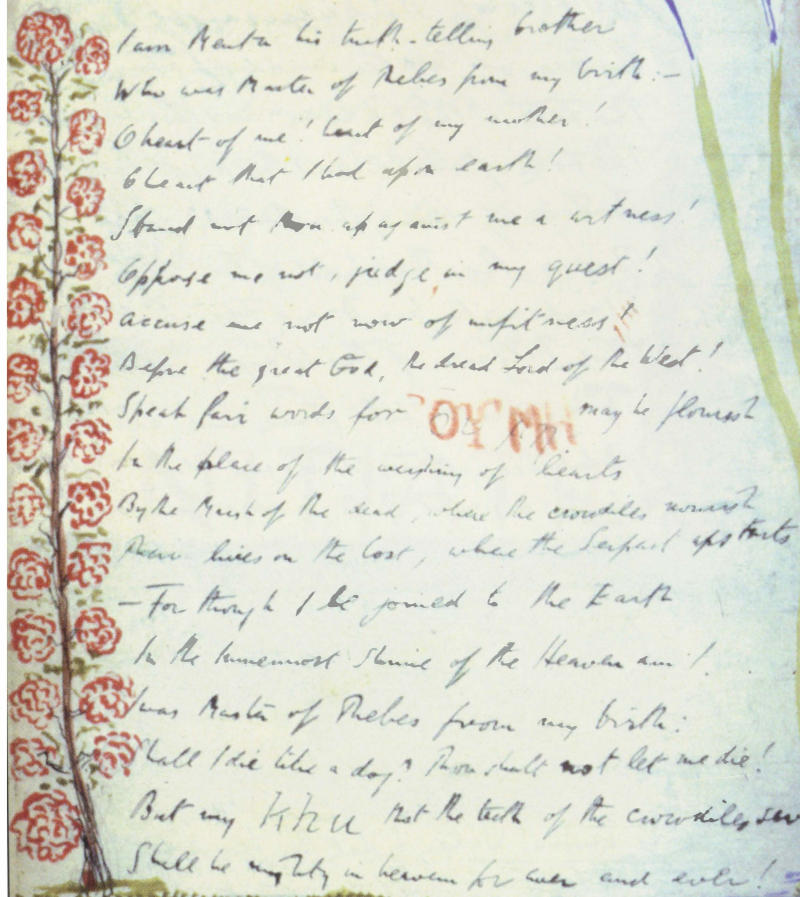 I am Mentu his truth-telling brother
Who was Master of Thebes from my birth:—
O heart of me! heart of my mother!
O heart that I had upon earth!
Stand not thou up against me a witness!
Oppose me not, judge, in my quest!
Accuse me not now of unfitness!
Before the great God, the dread Lord of the West!
Speak fair words for may he flourish
In the place of the weighing of hearts
By the Marsh of the dead, where the crocodiles nourish
Their lives on the lost, where the Serpent upstarts
— For though I be joined to the Earth
In the Innermost Shrine of the Heaven am I.
I was Master of Thebes from my birth:
Shall I die like a dog? Thou shalt not let me die!
But my Khu that the teeth of the crocodiles
Shall be mighty in heaven for ever and ever!